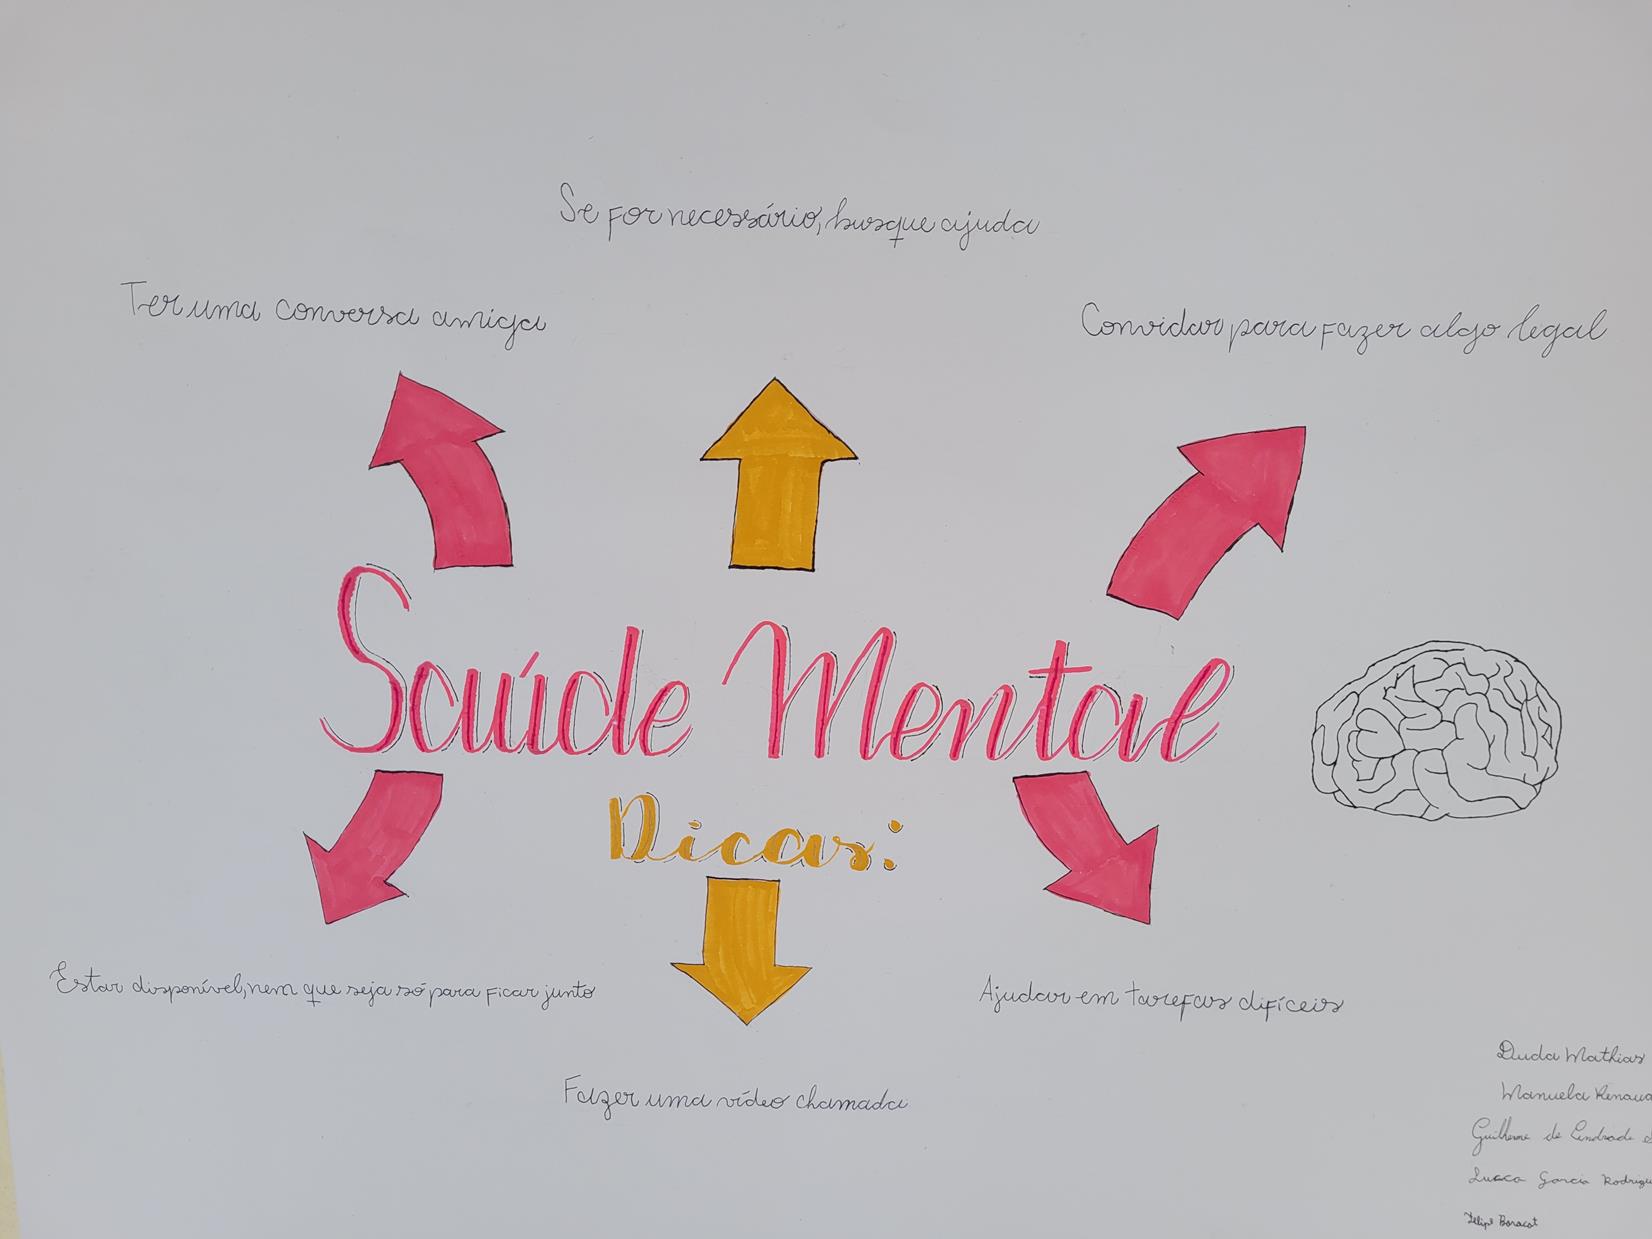 Se for necessário, busque ajuda
Ter uma conversa amiga
Convidar para fazer algo legal
Saúde Mental
Dicas:
Estar disponível, nem que seja só para ficar junto
Ajudar em tarefas difíceis
Fazer uma vídeo chamada
Duda Mathias
Manuela
Guilherme de Andrade
Lucca Garcia
Felipe